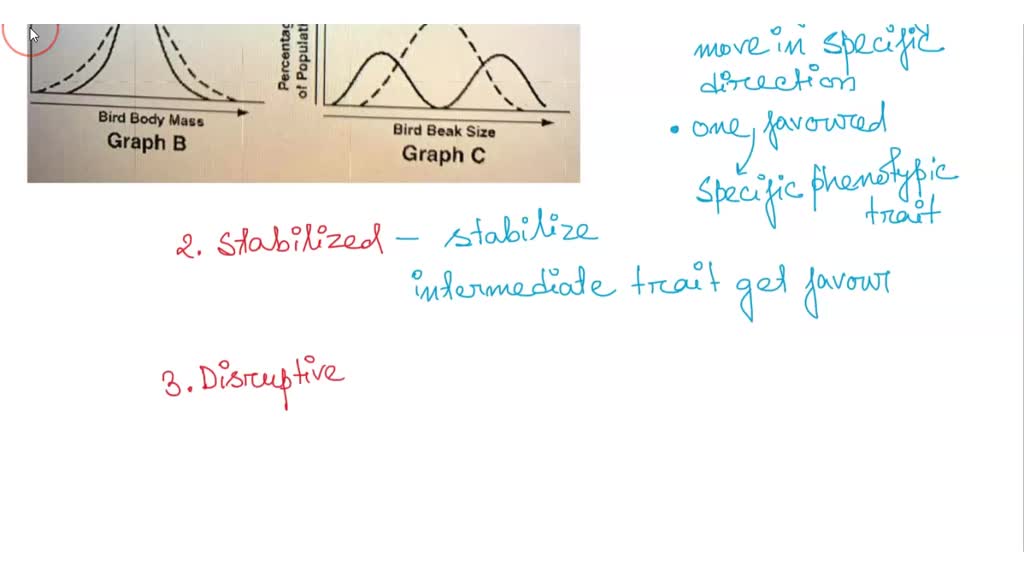 Percentag
of Populati
Bird Body Mass
Graph B
Bird Beak Size
Graph C
move in specific
direction
• one, favoured
specific phenotypic
trait
2. Stabilized – stabilize
intermediate trait get favour
3. Disruptive